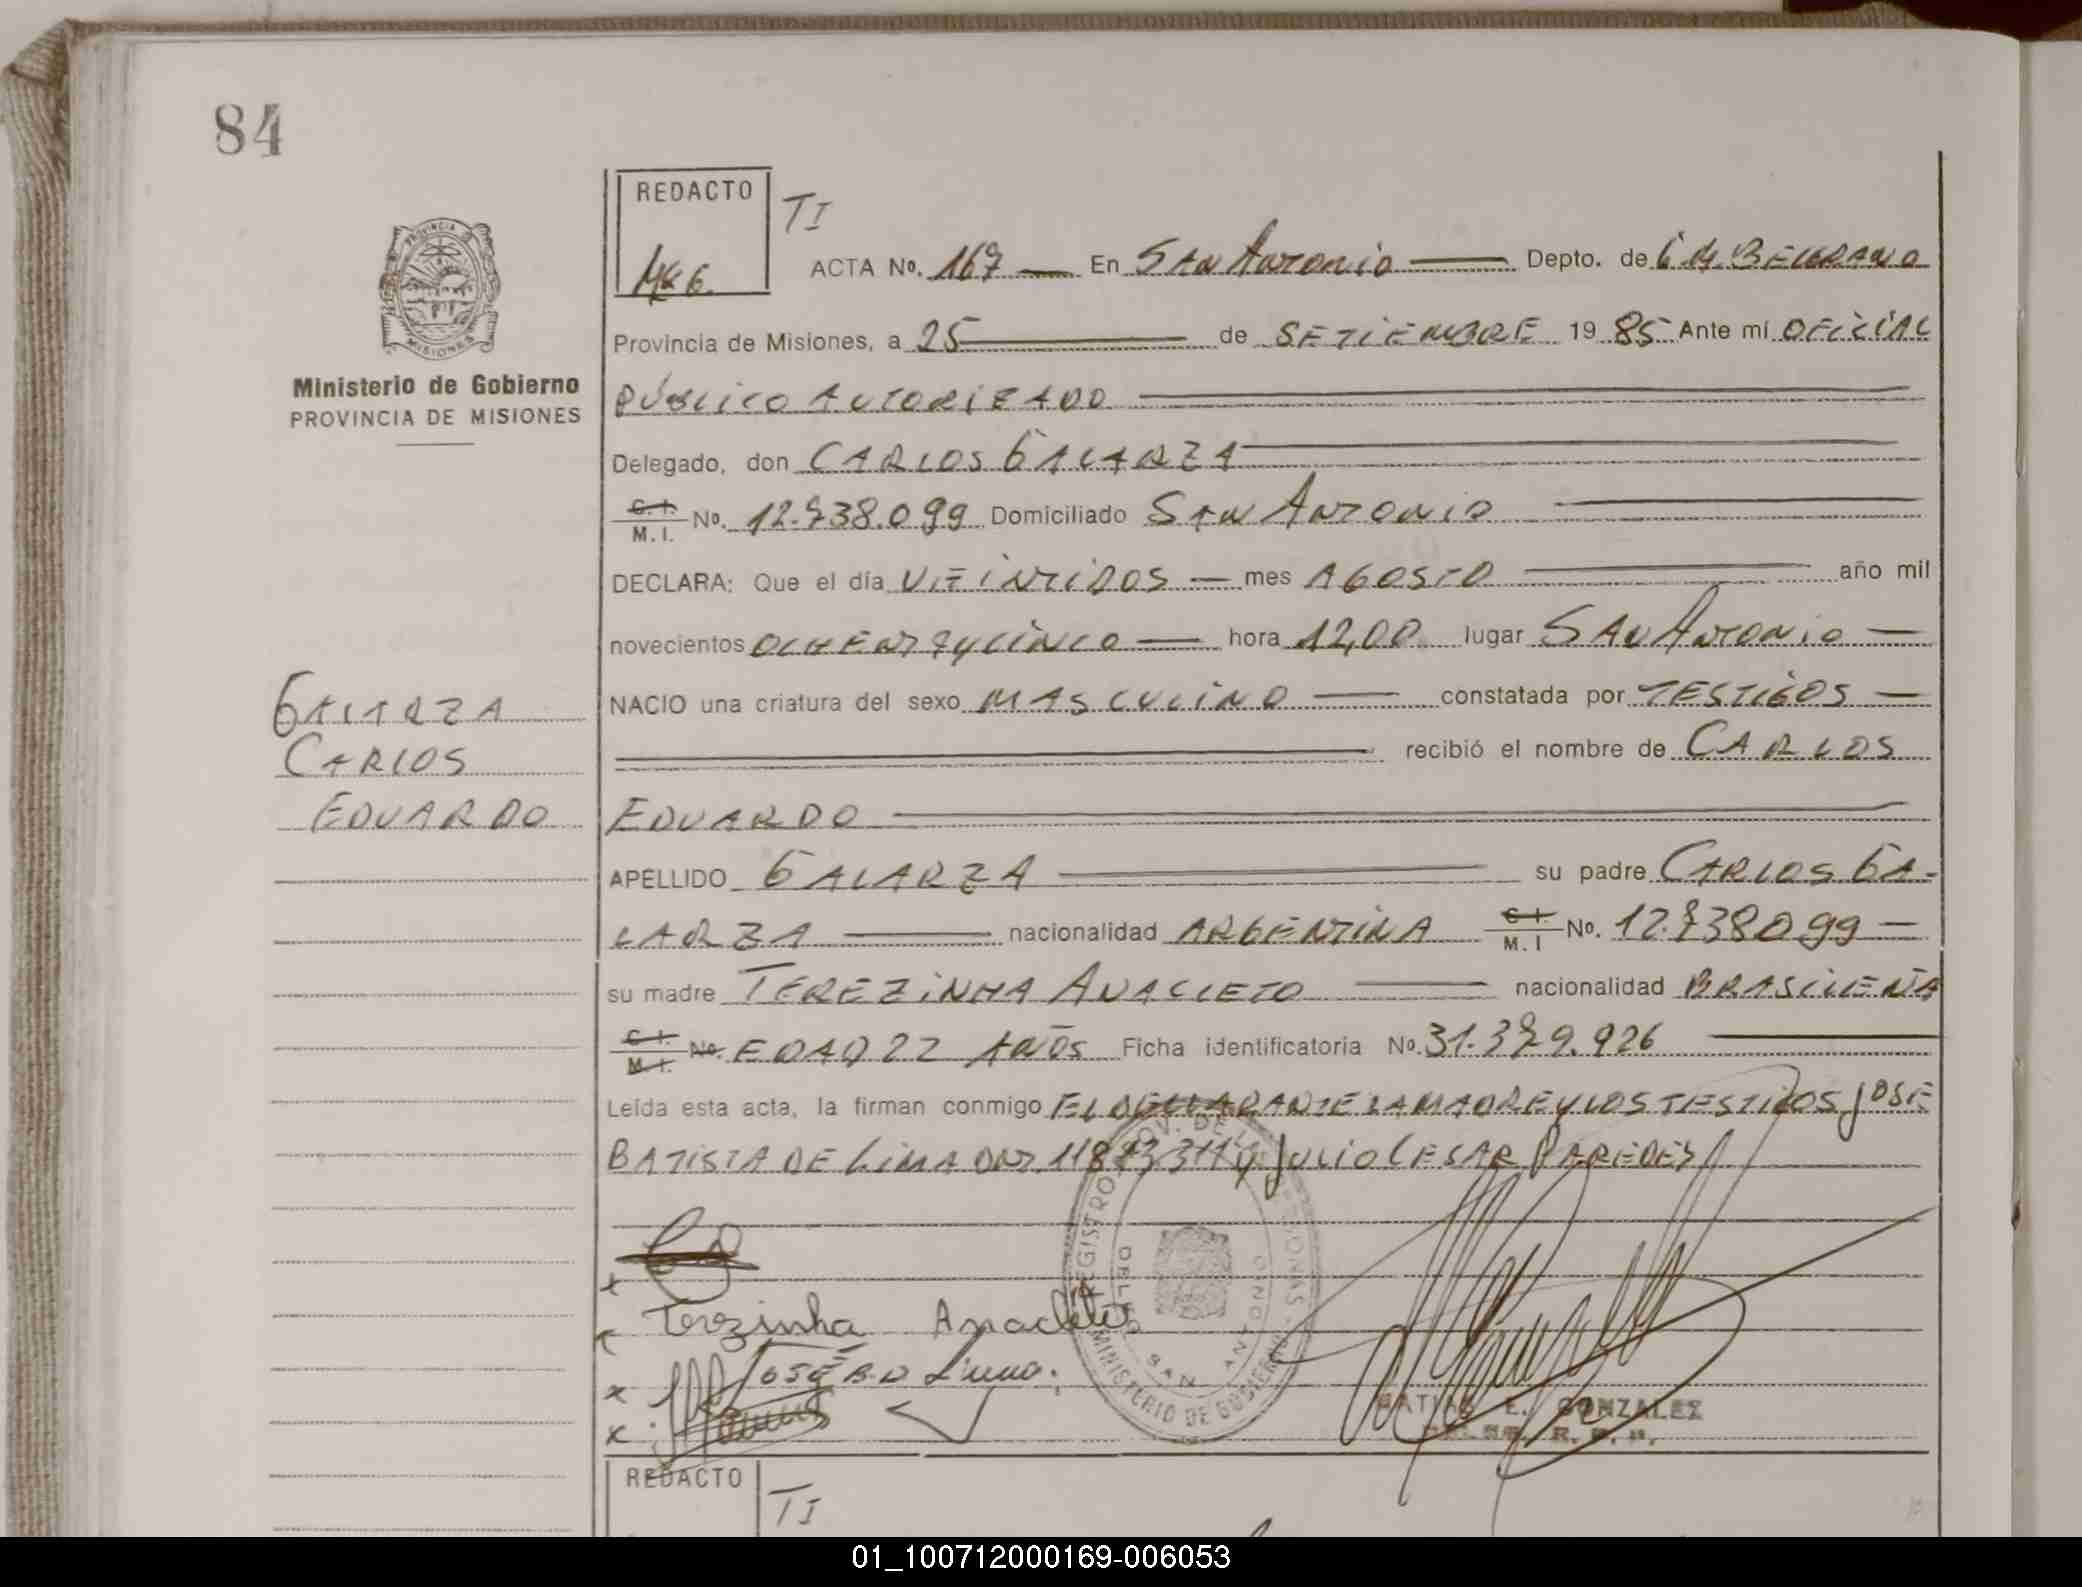 84
REDACTO
TI
ACTA No. 167 En SAN ANTONIO Depto. de G.M. BELGRANO
Provincia de Misiones, a 25 de SETIEMBRE 19 85 Ante mí OFICIAL
Ministerio de Gobierno
PROVINCIA DE MISIONES
PÚBLICO AUTORIZADO
Delegado, don CARLOS GALARZA
C.I. M.I. No. 12.738.099 Domiciliado SAN ANTONIO
DECLARA: Que el día VEINTIDOS mes AGOSTO año mil
novecientos OCHENTAYCINCO hora 12,00 lugar SAN ANTONIO
GALARZA
NACIO una criatura del sexo MASCULINO constatada por TESTIGOS
CARLOS
recibió el nombre de CARLOS
EDUARDO
EDUARDO
APELLIDO GALARZA su padre CARLOS GA-
LARZA nacionalidad ARGENTINA C.I. M.I No. 12.738099
su madre TEREZINHA ANACLETO nacionalidad BRASILEÑA
C.I. M.I. No. EDAD 22 AÑOS Ficha identificatoria No. 31.379.926
Leída esta acta, la firman conmigo EL DECLARANTE LA MADRE Y LOS TESTIGOS JOSE
BATISTA DE LIMA DNI. 11873311 y JULIO CESAR PAREDES
REGISTRO PROV. DE LAS PERSONAS
MINISTERIO DE GOBIERNO
SAN ANTONIO
x
Terezinha Anacleto
x JOSÉ B.D Lima.
x
MATIAS E. GONZALEZ
REDACTO
TI
01_100712000169-006053